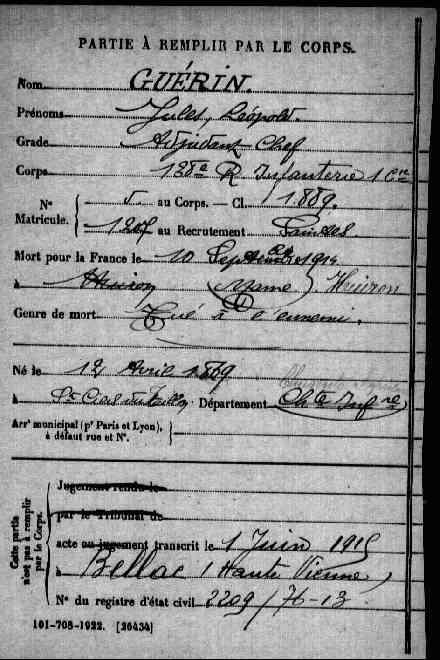 PARTIE À REMPLIR PAR LE CORPS.
Nom GUÉRIN.
Prénoms Jules, Léopold.
Grade Adjudant Chef
Corps 138e R Infanterie 1 Cie
N° Matricule. { au Corps. — Cl. 1889.
1207 au Recrutement Saintes
Mort pour la France le 10 Septembre 1914
à Huiron (Marne) Huiron
Genre de mort Tué à l'ennemi.
Né le 12 Avril 1869
à St Ciers du Taillon Département Chte Infre
Arrt municipal (pr Paris et Lyon), à défaut rue et N°.
Cette partie n'est pas à remplir par le Corps.
Jugement rendu le
par le Tribunal de
acte ou jugement transcrit le 1 Juin 1915
à Bellac (Haute Vienne)
N° du registre d'état civil 2209/76-13
101-708-1922. [26434]